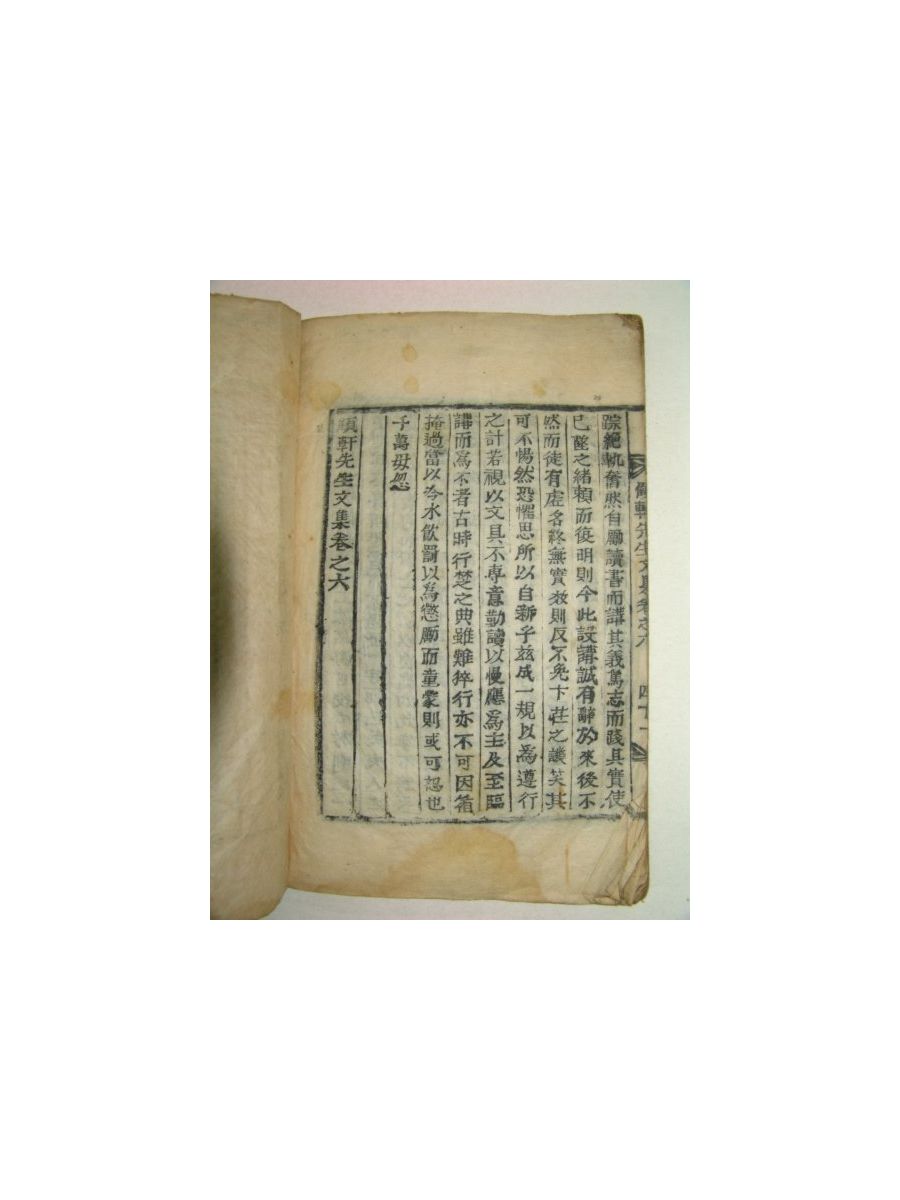 軒先生文集卷之六 四十一
踪絶軌奮然自勵讀書而講其義篤志而踐其實使
已墜之緖賴而復明則今此設講誠有辭於來後不
然而徒有虛名終無實效則反不免卞莊之譏笑其
可不惕然恐懼思所以自新乎玆成一規以爲遵行
之計若視以文具不專意勤讀以慢應爲主及至臨
講而爲不者古時行楚之典雖難猝行亦不可因循
掩過當以冷水飮罰以爲懲勵而童蒙則或可恕也
千萬毋忽
軒先生文集卷之六